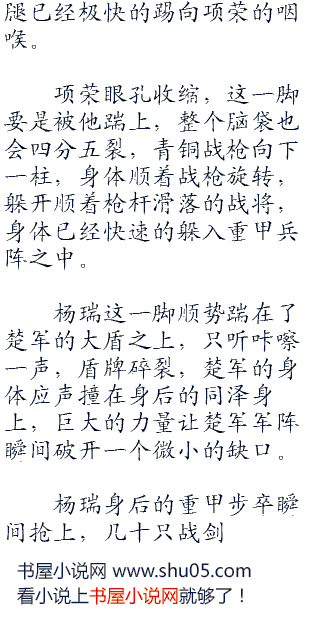 腿已经极快的踢向项荣的咽
喉。
项荣眼孔收缩，这一脚
要是被他踹上，整个脑袋也
会四分五裂，青铜战枪向下
一柱，身体顺着战枪旋转，
躲开顺着枪杆滑落的战将，
身体已经快速的躲入重甲兵
阵之中。
杨瑞这一脚顺势踹在了
楚军的大盾之上，只听咔嚓
一声，盾牌碎裂，楚军的身
体应声撞在身后的同泽身
上，巨大的力量让楚军军阵
瞬间破开一个微小的缺口。
杨瑞身后的重甲步卒瞬
间抢上，几十只战剑
书屋小说网 www.shu05.com
看小说上书屋小说网就够了！